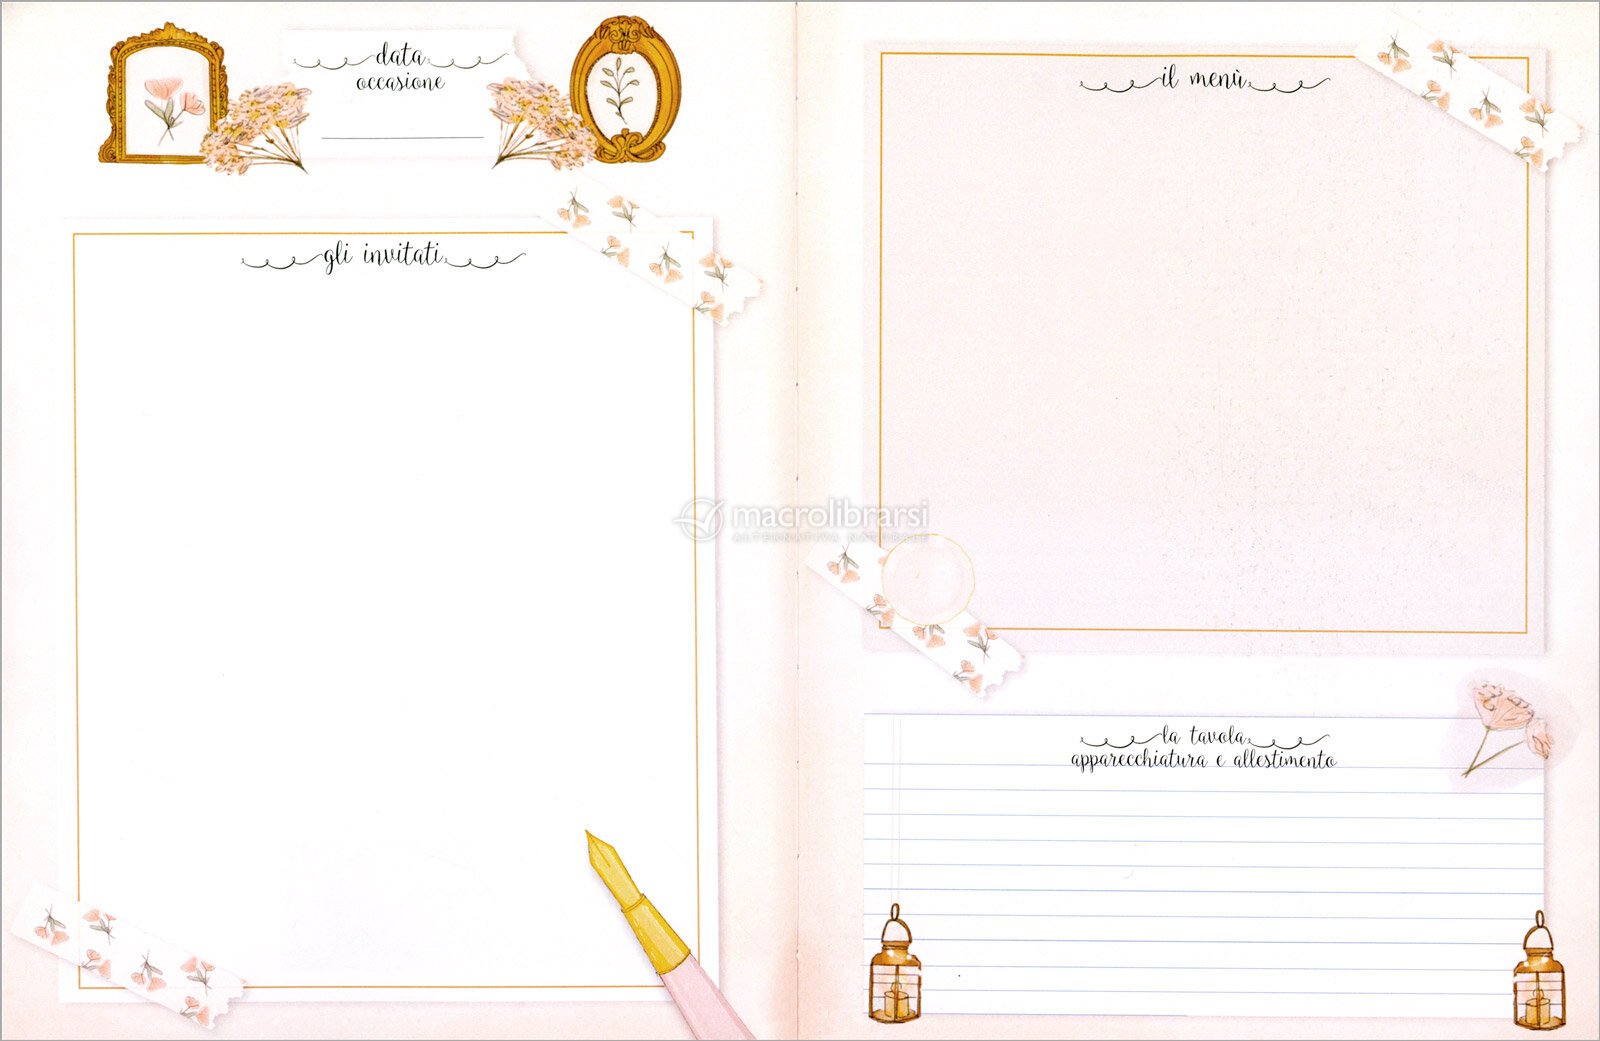 data
occasione
gli invitati
il menù
macrolibrarsi
ALTERNATIVA NATURALE
la tavola
apparecchiatura e allestimento